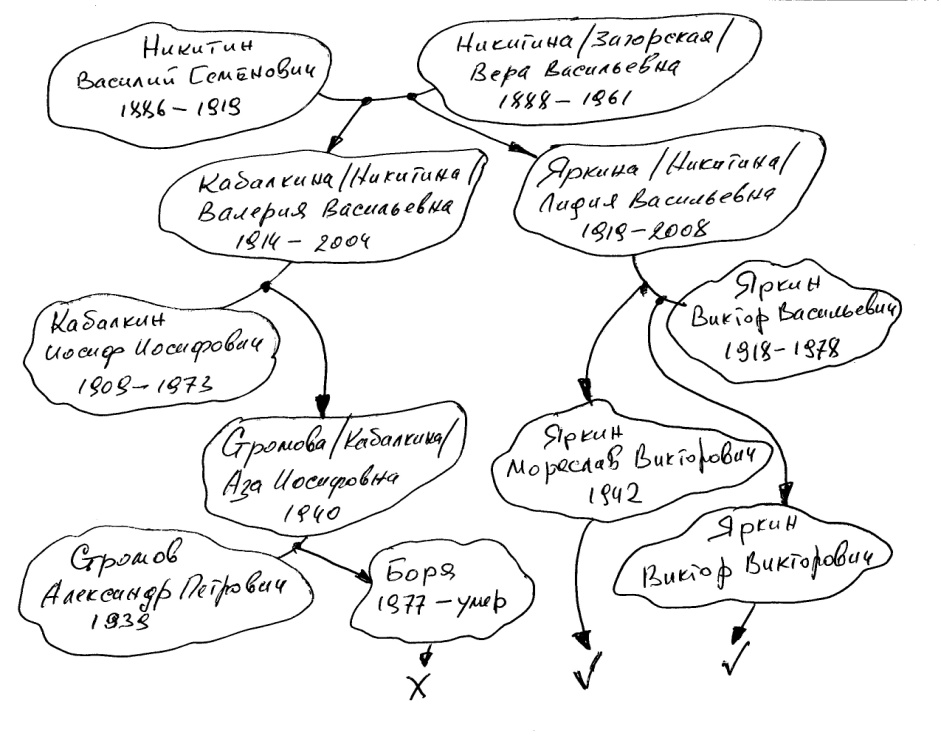 Никитин
Василий Семёнович
1886 – 1919
Никитина /Загорская/
Вера Васильевна
1888 – 1961
Кабалкина /Никитина/
Валерия Васильевна
1914 – 2004
Яркина /Никитина/
Лидия Васильевна
1919 – 2008
Кабалкин
Иосиф Иосифович
1909 – 1973
Яркин
Виктор Васильевич
1918 – 1978
Громова /Кабалкина/
Аза Иосифовна
1940
Яркин
Мореслав Викторович
1942
Яркин
Виктор Викторович
Громов
Александр Петрович
1939
Боря
1977 – умер
X